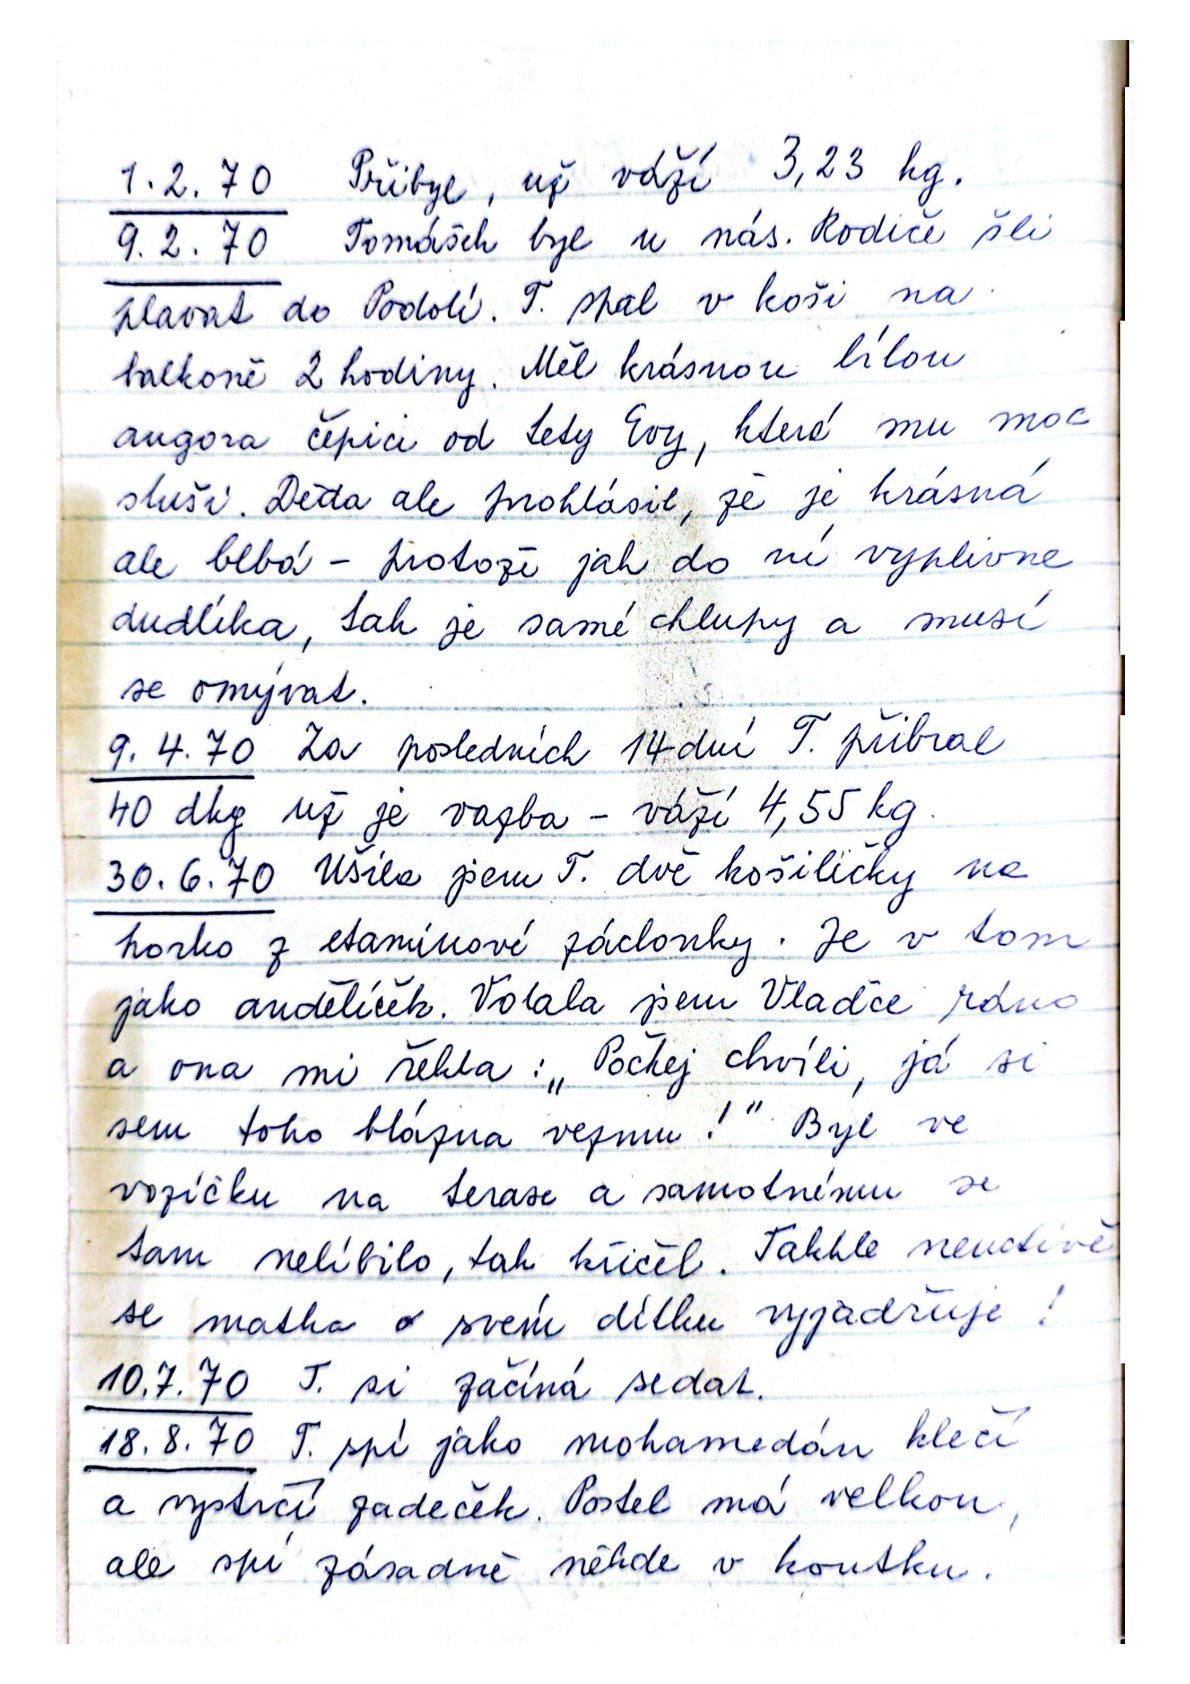 1.2.70 Přibyl, už váží 3,23 kg.
9.2.70 Tomášek byl u nás. Rodiče šli
plavat do Podolí. T. spal v koši na
balkoně 2 hodiny. Měl krásnou bílou
angora čepici od tety Evy, která mu moc
sluší. Děda ale prohlásil, že je krásná
ale blbá – protože jak do ní vyplivne
dudlíka, tak je samé chlupy a musí
se omývat.
9.4.70 Za posledních 14 dní T. přibral
40 dkg už je vazba – váží 4,55 kg.
30.6.70 Ušila jsem T. dvě košiličky na
horko z etamínové záclonky. Je v tom
jako andělíček. Volala jsem Vlaďce ráno
a ona mi řekla: „Počkej chvíli, já si
sem toho blázna vezmu!" Byl ve
vozíčku na terase a samotnému se
tam nelíbilo, tak křičel. Takhle neuctivě
se matka o svém dítku vyjadřuje!
10.7.70 T. si začíná sedat.
18.8.70 T. spí jako mohamedán klečí
a vystrčí zadeček. Postel má velkou,
ale spí zásadně někde v koutku.